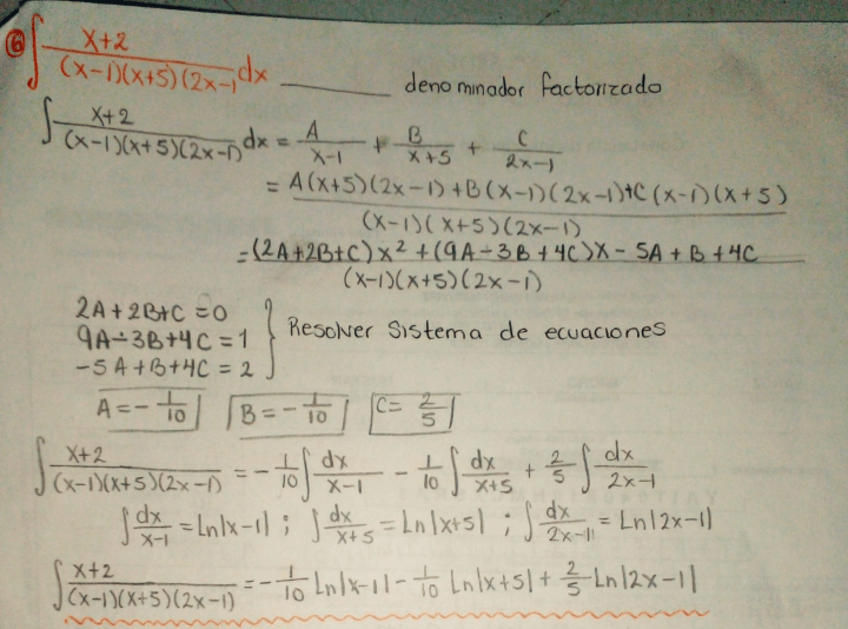 ⑥ ∫ x+2 / (x-1)(x+5)(2x-1 dx ______ denominador factorizado
∫ x+2 / (x-1)(x+5)(2x-1) dx = A / x-1 + B / x+5 + C / 2x-1
= A(x+5)(2x-1)+B(x-1)(2x-1)+C(x-1)(x+5) / (x-1)(x+5)(2x-1)
= (2A+2B+C)x² + (9A-3B+4C)x - 5A+B+4C / (x-1)(x+5)(2x-1)
2A+2B+C=0
9A-3B+4C=1 } Resolver Sistema de ecuaciones
-5A+B+4C=2
A=-1/10 B=-1/10 C=2/5
∫ x+2 / (x-1)(x+5)(2x-1) = -1/10 ∫ dx / x-1 - 1/10 ∫ dx / x+5 + 2/5 ∫ dx / 2x-1
∫ dx / x-1 = Ln|x-1| ; ∫ dx / x+5 = Ln|x+5| ; ∫ dx / 2x-1 = Ln|2x-1|
∫ x+2 / (x-1)(x+5)(2x-1) = -1/10 Ln|x-1| - 1/10 Ln|x+5| + 2/5 Ln|2x-1|